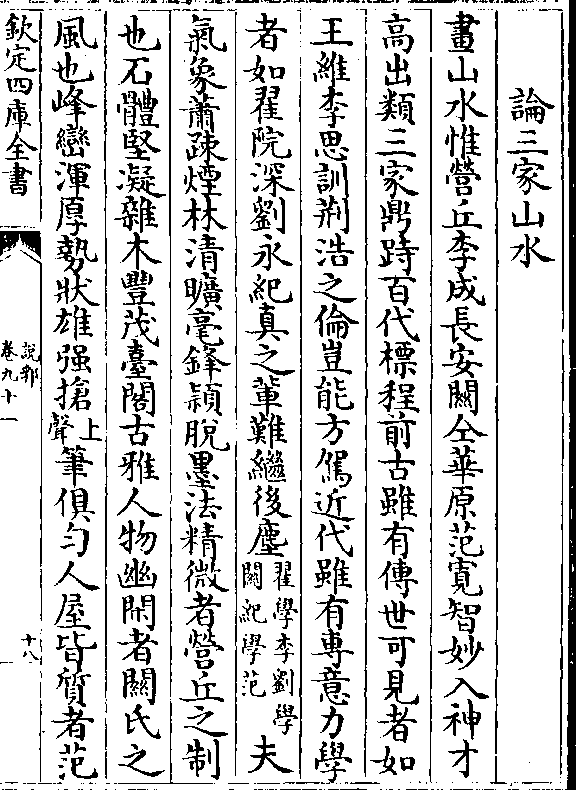 論三家山水
畫山水惟營丘李成長安闗仝華原范寛智妙入神才
高出類三家鼎跱百代標程前古雖有傳世可見者如
王維李思訓荆浩之倫豈能方駕近代雖有專意力學
者如翟院深劉永紀真之軰難繼後塵翟學李劉學闗紀學范夫
氣象蕭疎煙林清曠毫鋒頴脱墨法精微者營丘之制
也石體堅凝雜木豐茂臺閣古雅人物幽閑者闗氏之
風也峰巒渾厚勢狀雄强搶上聲筆俱匀人屋皆質者范
欽定四庫全書
說郛
卷九十一
十八